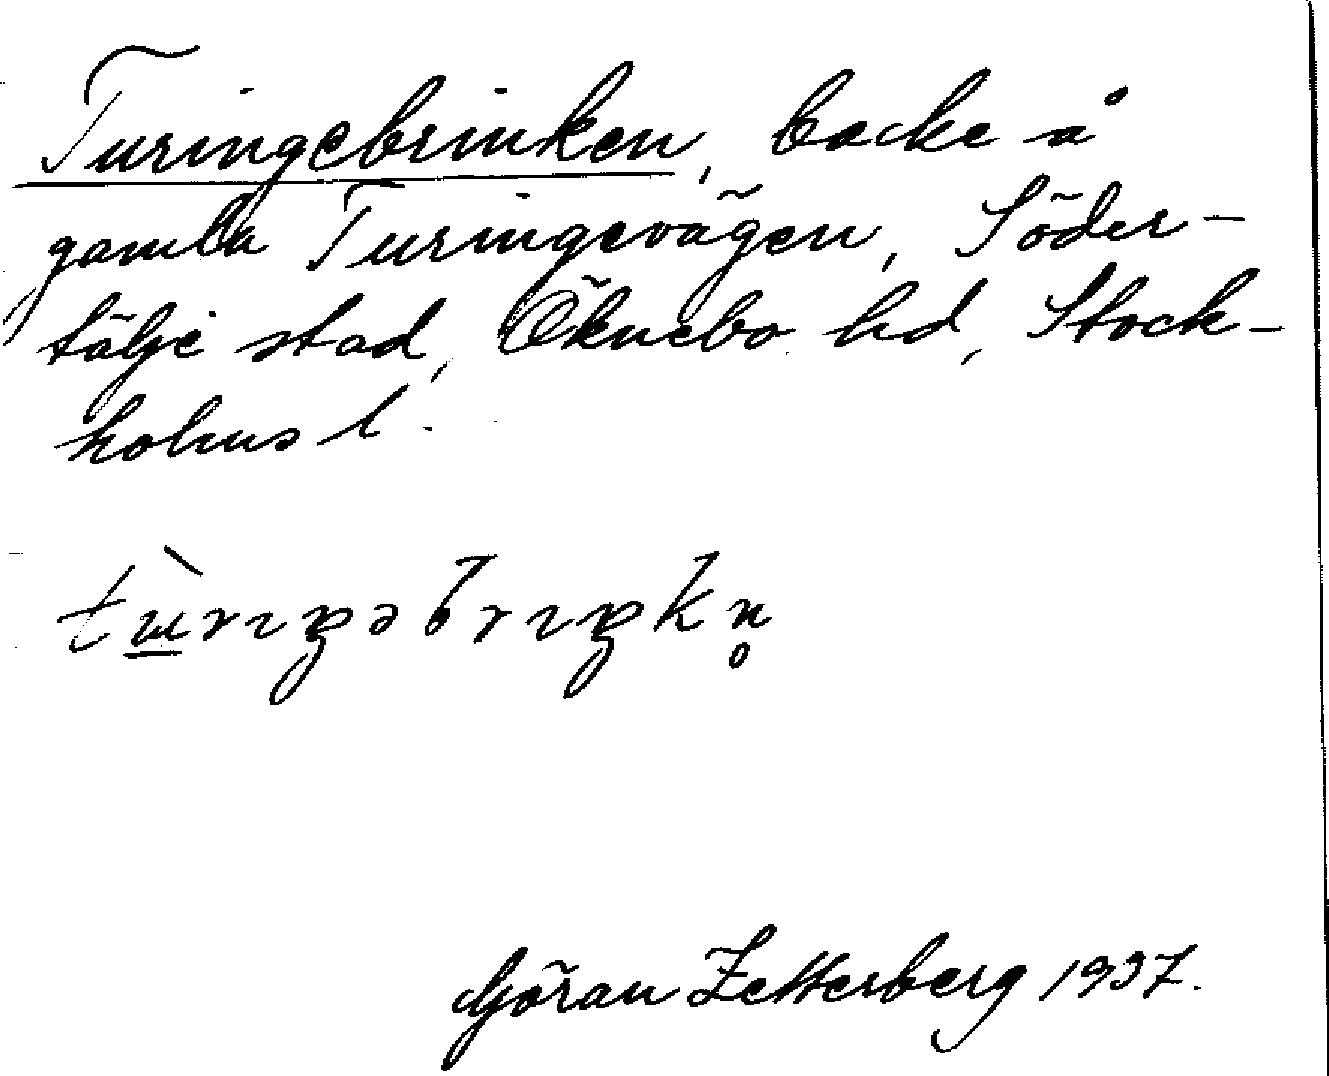 Turingebrinken, backe å
gamla Turingevägen, Söder-
tälje stad, Öknebo hd, Stock-
holms l.
Göran Zetterberg 1937.